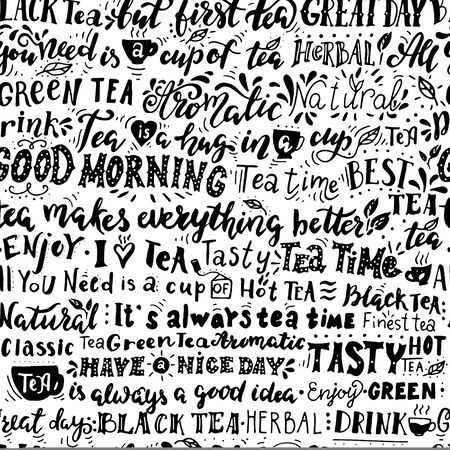 BLACK Tea but first tea GREAT DAY B
you need is a cup of tea HERBAL All
GREEN TEA Aromatic Natural
Drink Tea is a hug in a cup TEA
GOOD MORNING Tea time BEST TEA
tea makes everything better tea
ENJOY I TEA Tasty TEA TIME
All You Need is a cup OF HOT TEA Black TEA
Natural It's always tea time Finest tea
Classic Tea Green Tea Aromatic TASTY HOT TEA
HAVE a NICE DAY
TEA is always a good idea Enjoy GREEN
Great day BLACK TEA HERBAL DRINK G